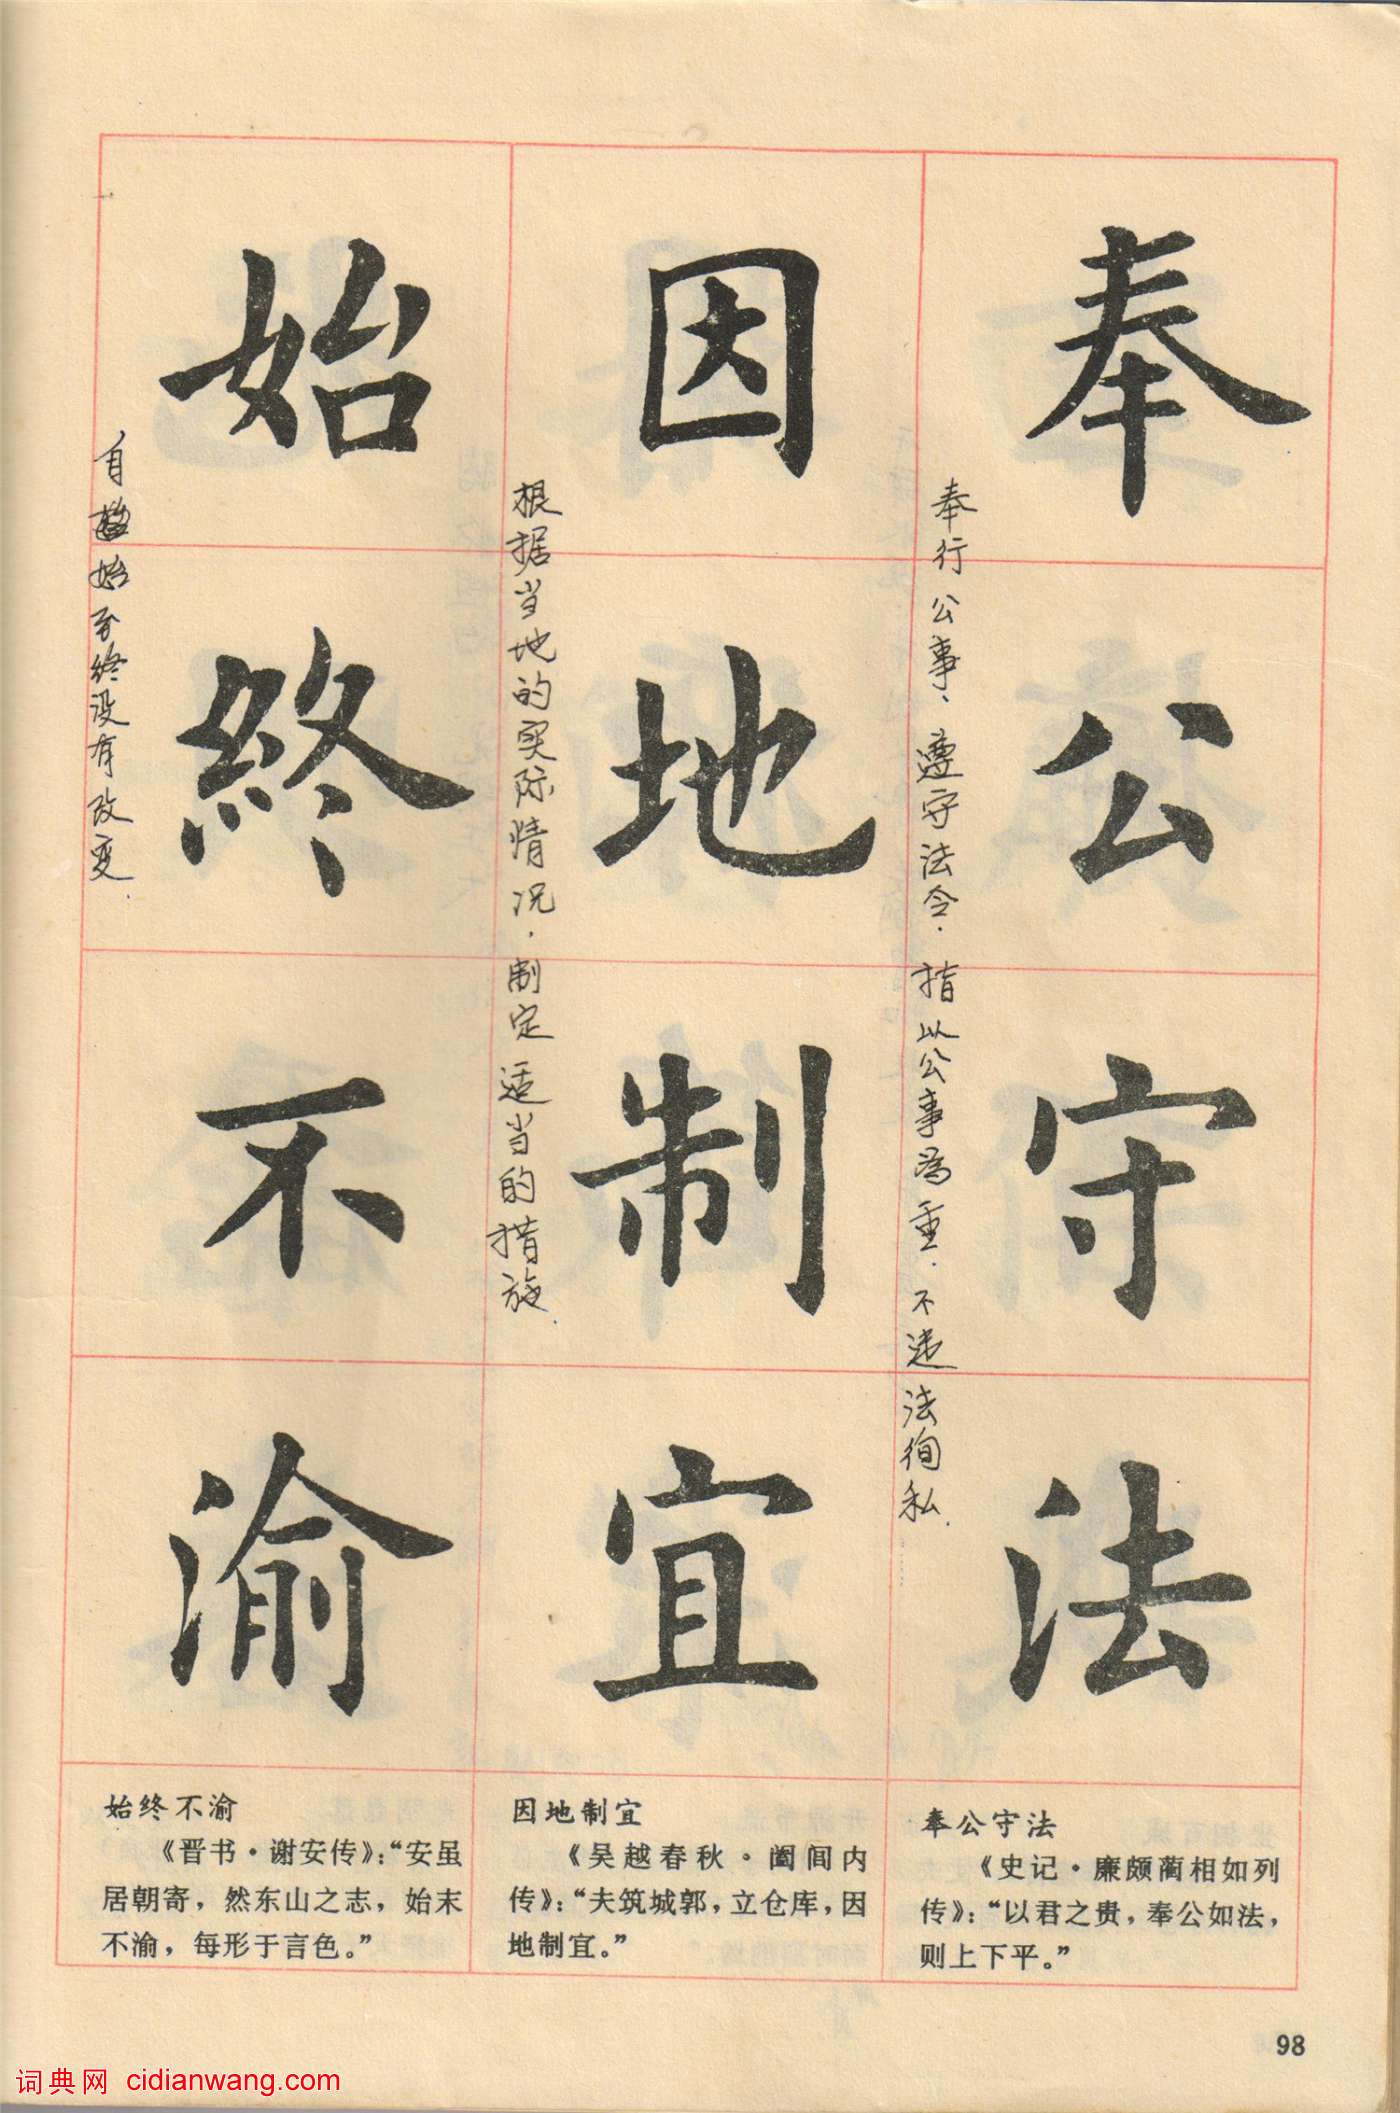 奉公守法
奉行公事、遵守法令．指以公事为重．不违法徇私．
因地制宜
根据当地的实际情况．制定适当的措施．
始終不渝
自始至终没有改变．
奉公守法
《史记·廉颇蔺相如列
传》：“以君之贵，奉公如法，
则上下平。”
因地制宜
《吴越春秋·阖闾内
传》：“夫筑城郭，立仓库，因
地制宜。”
始终不渝
《晋书·谢安传》：“安虽
居朝寄，然东山之志，始末
不渝，每形于言色。”
98
词典网 cidianwang.com